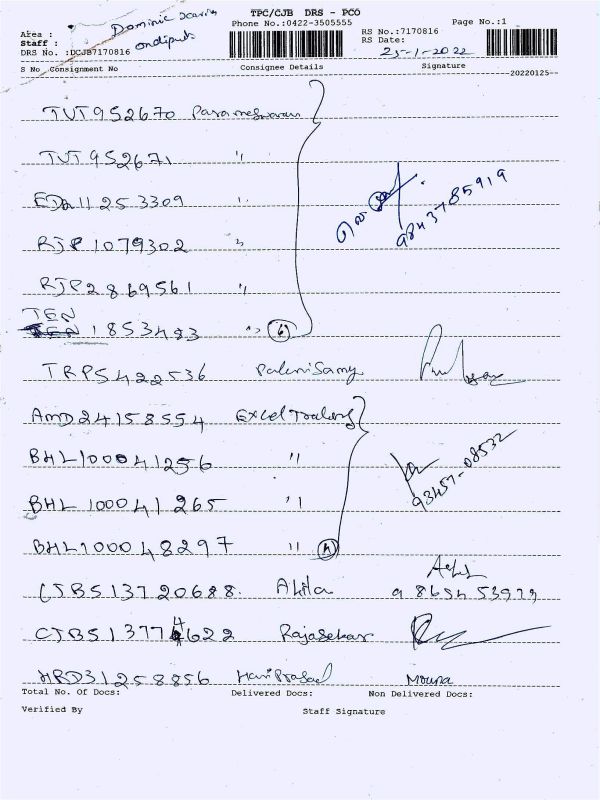 TPC/CJB DRS - PCO
Phone No.:0422-3505555
Page No.:1
Dominic
Area :
Staff :
DRS No. :DCJB7170816
RS No.:7170816
RS Date:
25-1-2022
S No Consignment No Consignee Details Signature
20220125
TUT952670 Parameswaran
TUT952671 "
EDA11253309 "
9843785919
RJP1079302 "
RJP2869561 "
TEN
TEN 1853483 " 6
TRP5422536 Palanisamy
AMD24158554 Excel Trading
BHL100041256 "
93457-08532
BHL100041265 "
BHL100048297 " 4
CJB513720688. Akila
CJB513774622 Rajasekar
HRD31258856 Hari Prasad Mouna
Total No. Of Docs: Delivered Docs: Non Delivered Docs:
Verified By Staff Signature